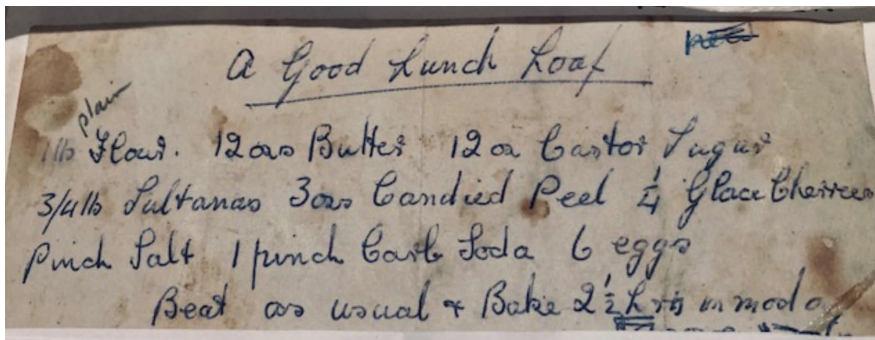 A Good Lunch Loaf
plain
1 lb Flour. 12 ozs Butter 12 oz Castor Sugar
3/4 lb Sultanas 3 ozs Candied Peel ¼ Glace Cherries
Pinch Salt 1 pinch Carb Soda 6 eggs
Beat as usual & Bake 2½ hrs in mod